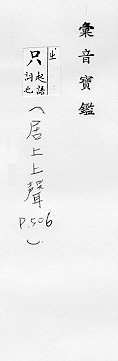 彙音寶鑑
只起語詞也
(居上上聲
P.506
)